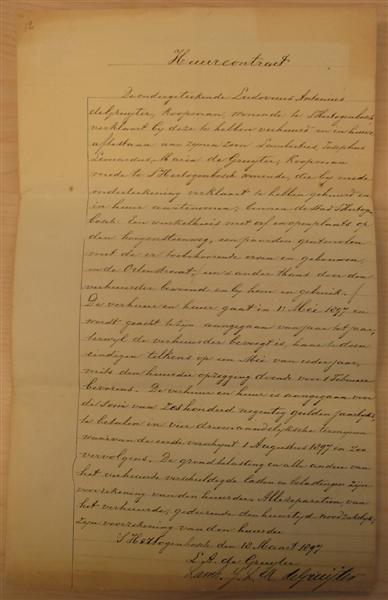 12
Huurcontract
De ondergeteekende Ludovicus Antonius
de Gruyter, koopman, wonende te 'S Hertogenbosch
verklaart by deze te hebben verhuurd en in huur
afte staan aan zynen zoon Lambertus Josephus
Leonardus Maria de Gruyter, koopman
mede te 'S Hertogenbosch wonende, die by mede
onderteekening verklaart te hebben gehuurd en
in huur aantenemen; binnen de stad 'S Hertogen-
bosch. Een winkelhuis met erf en open plaats op
den hoogensteenweg, een paarden
met de er toebehoorende erven en gebouwen,
in de Orlenstraat, een & ander thans door den
verhuurder bewoond en by hem in gebruik.
De verhuur en huur gaat in 1 Mei 1897 en
wordt geacht te zyn aangegaan van jaar tot jaar,
terwyl de verhuurder bevoegd is, haar te doen
eindigen telkens op un Mei van ieder jaar,
mits den huurder opzegging doende voor 1 Februarie
bevorens. De verhuur en huur is aangegaan voor
de Som van Zeshonderd negentig gulden jaarlyks,
te betalen in vier driemaandelyksche termynen
waarvan de eerste verschynt 1 Augustus 1897 en zoo
vervolgens. De grondbelasting en alle andere van
het verhuurde verschuldigde lasten en belastingen zyn
voor rekening van den huurder. Alle reparatien van
het verhuurde, gedurende den huurtyd noodzakelyk,
zyn voor rekening van den huurder
'S Hertogenbosch den 18 Maart 1897
L. A. de Gruyter
Lamb. J. L. M. de Gruijter